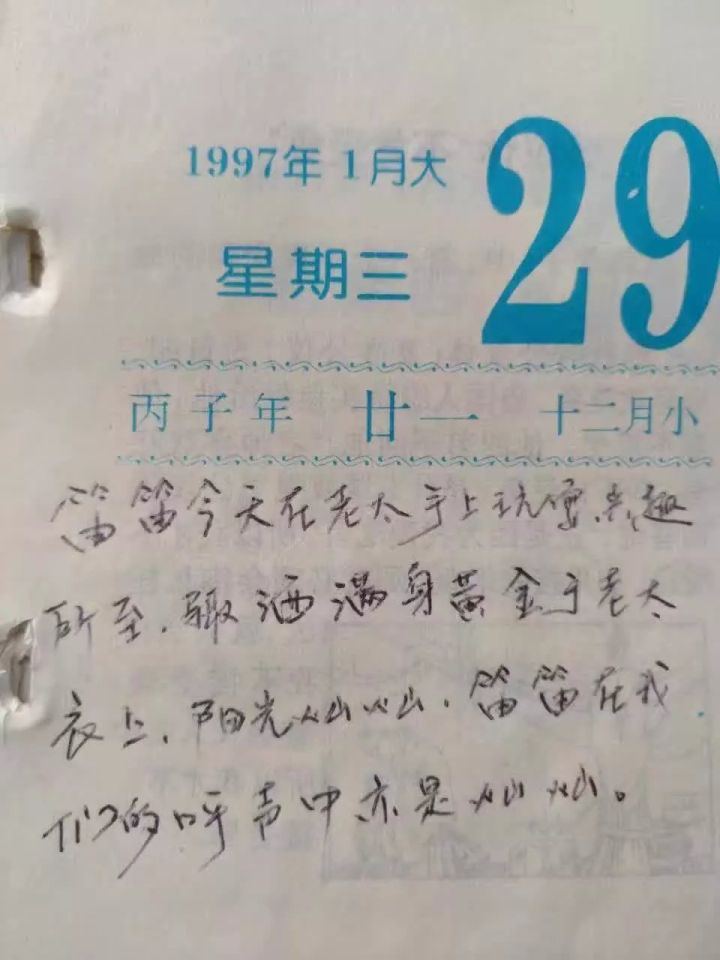 1997年1月大
29
星期三
丙子年 廿一 十二月小
笛笛今天在老太手上玩耍,兴趣
所至,骤洒满身黄金于老太
衣上,阳光灿灿,笛笛在我
们的呼声中亦是灿灿。